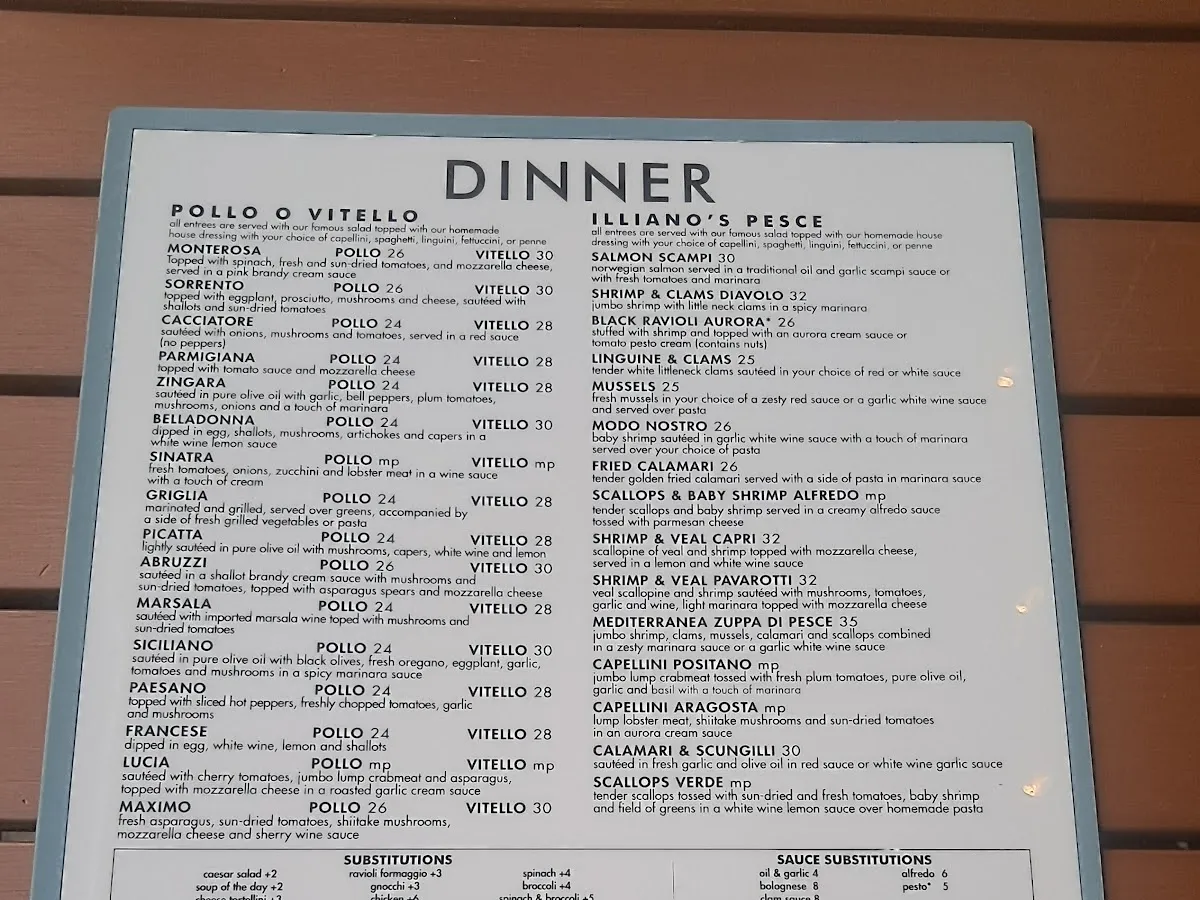 DINNER
POLLO O VITELLO
all entrees are served with our famous salad topped with our homemade
house dressing with your choice of capellini, spaghetti, linguini, fettuccini, or penne
MONTEROSA POLLO 26 VITELLO 30
Topped with spinach, fresh and sun-dried tomatoes, and mozzarella cheese,
served in a pink brandy cream sauce
SORRENTO POLLO 26 VITELLO 30
topped with eggplant, prosciutto, mushrooms and cheese, sautéed with
shallots and sun-dried tomatoes
CACCIATORE POLLO 24 VITELLO 28
sautéed with onions, mushrooms and tomatoes, served in a red sauce
(no peppers)
PARMIGIANA POLLO 24 VITELLO 28
topped with tomato sauce and mozzarella cheese
ZINGARA POLLO 24 VITELLO 28
sautéed in pure olive oil with garlic, bell peppers, plum tomatoes,
mushrooms, onions and a touch of marinara
BELLADONNA POLLO 24 VITELLO 30
dipped in egg, shallots, mushrooms, artichokes and capers in a
white wine lemon sauce
SINATRA POLLO mp VITELLO mp
fresh tomatoes, onions, zucchini and lobster meat in a wine sauce
with a touch of cream
GRIGLIA POLLO 24 VITELLO 28
marinated and grilled, served over greens, accompanied by
a side of fresh grilled vegetables or pasta
PICATTA POLLO 24 VITELLO 28
lightly sautéed in pure olive oil with mushrooms, capers, white wine and lemon
ABRUZZI POLLO 26 VITELLO 30
sautéed in a shallot brandy cream sauce with mushrooms and
sun-dried tomatoes, topped with asparagus spears and mozzarella cheese
MARSALA POLLO 24 VITELLO 28
sautéed with imported marsala wine toped with mushrooms and
sun-dried tomatoes
SICILIANO POLLO 24 VITELLO 30
sautéed in pure olive oil with black olives, fresh oregano, eggplant, garlic,
tomatoes and mushrooms in a spicy marinara sauce
PAESANO POLLO 24 VITELLO 28
topped with sliced hot peppers, freshly chopped tomatoes, garlic
and mushrooms
FRANCESE POLLO 24 VITELLO 28
dipped in egg, white wine, lemon and shallots
LUCIA POLLO mp VITELLO mp
sautéed with cherry tomatoes, jumbo lump crabmeat and asparagus,
topped with mozzarella cheese in a roasted garlic cream sauce
MAXIMO POLLO 26 VITELLO 30
fresh asparagus, sun-dried tomatoes, shiitake mushrooms,
mozzarella cheese and sherry wine sauce
ILLIANO'S PESCE
all entrees are served with our famous salad topped with our homemade house
dressing with your choice of capellini, spaghetti, linguini, fettuccini, or penne
SALMON SCAMPI 30
norwegian salmon served in a traditional oil and garlic scampi sauce or
with fresh tomatoes and marinara
SHRIMP & CLAMS DIAVOLO 32
jumbo shrimp with little neck clams in a spicy marinara
BLACK RAVIOLI AURORA* 26
stuffed with shrimp and topped with an aurora cream sauce or
tomato pesto cream (contains nuts)
LINGUINE & CLAMS 25
tender white littleneck clams sautéed in your choice of red or white sauce
MUSSELS 25
fresh mussels in your choice of a zesty red sauce or a garlic white wine sauce
and served over pasta
MODO NOSTRO 26
baby shrimp sautéed in garlic white wine sauce with a touch of marinara
served over your choice of pasta
FRIED CALAMARI 26
tender golden fried calamari served with a side of pasta in marinara sauce
SCALLOPS & BABY SHRIMP ALFREDO mp
tender scallops and baby shrimp served in a creamy alfredo sauce
tossed with parmesan cheese
SHRIMP & VEAL CAPRI 32
scallopine of veal and shrimp topped with mozzarella cheese,
served in a lemon and white wine sauce
SHRIMP & VEAL PAVAROTTI 32
veal scallopine and shrimp sautéed with mushrooms, tomatoes,
garlic and wine, light marinara topped with mozzarella cheese
MEDITERRANEA ZUPPA DI PESCE 35
jumbo shrimp, clams, mussels, calamari and scallops combined
in a zesty marinara sauce or a garlic white wine sauce
CAPELLINI POSITANO mp
jumbo lump crabmeat tossed with fresh plum tomatoes, pure olive oil,
garlic and basil with a touch of marinara
CAPELLINI ARAGOSTA mp
lump lobster meat, shiitake mushrooms and sun-dried tomatoes
in an aurora cream sauce
CALAMARI & SCUNGILLI 30
sautéed in fresh garlic and olive oil in red sauce or white wine garlic sauce
SCALLOPS VERDE mp
tender scallops tossed with sun-dried and fresh tomatoes, baby shrimp
and field of greens in a white wine lemon sauce over homemade pasta
SUBSTITUTIONS
caesar salad +2 ravioli formaggio +3 spinach +4
soup of the day +2 gnocchi +3 broccoli +4
cheese tortellini +3 chicken +6 spinach & broccoli +5
SAUCE SUBSTITUTIONS
oil & garlic 4 alfredo 6
bolognese 8 pesto* 5
clam sauce 8